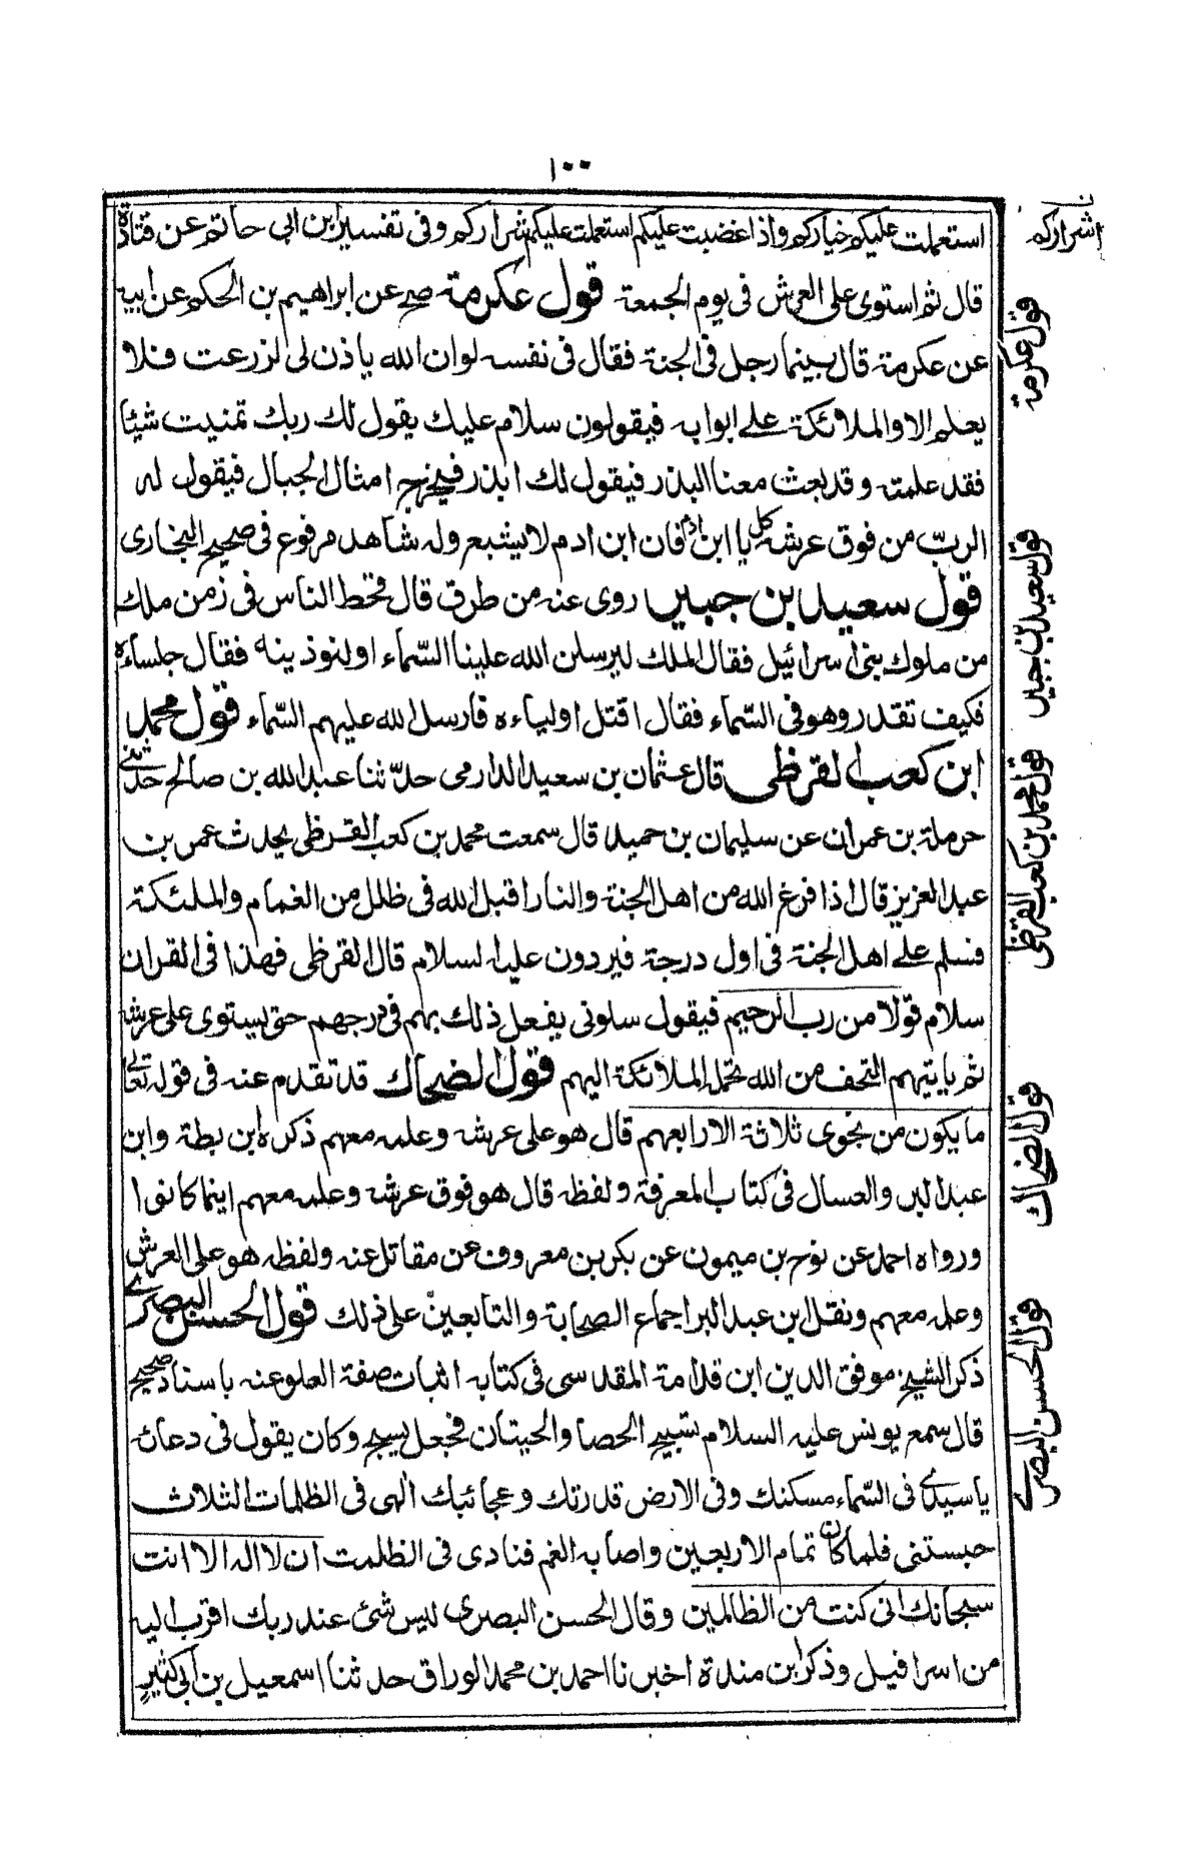 ١٠٠
استعملت عليكم خياركم واذا غضبت عليكم استعملت عليكم شراركم وفى تفسير ابن ابى حاتم عن قتادة
قال ثم استوى على العرش فى يوم الجمعة قول عكرمة صح عن ابراهيم بن الحكم عن ابيه
عن عكرمة قال بينما رجل فى الجنة فقال فى نفسه لو ان الله ياذن لى لزرعت فلا
يعلم الا والملائكة على ابوابه فيقولون سلام عليك يقول لك ربك تمنيت شيئا
فقد علمته وقد بعث معنا البذر فيقول لك ابذر فيخرج امثال الجبال فيقول له
الربّ من فوق عرشه كل يا ابن ادم فان ابن ادم لا يشبع وله شاهد مرفوع فى صحيح البخارى
قول سعيد بن جبير روى عنه من طرق قال قحط الناس فى زمن ملك
من ملوك بنى اسرائيل فقال الملك ليرسلن الله علينا السّماء او لنوذينه فقال جلساءه
فكيف تقدر وهو فى السّماء فقال اقتل اولياءه فارسل الله عليهم السّماء قول محمد
ابن كعب القرظى قال عثمان بن سعيد الدارمى حدّثنا عبد الله بن صالح حدثنى
حرملة بن عمران عن سليمان بن حميد قال سمعت محمد بن كعب القرظى يحدث عمر بن
عبد العزيز قال اذا فرغ الله من اهل الجنة والنار اقبل الله فى ظلل من الغمام والملئكة
فسلم على اهل الجنة فى اول درجة فيردون عليه السلام قال القرظى فهذا فى القران
سلام قولا من رب الرحيم فيقول سلونى يفعل ذلك بهم فى درجهم حتى يستوى على عرشه
ثم ياتيهم التحف من الله تحمله الملائكة اليهم قول الضحاك قد تقدم عنه فى قوله تعالى
ما يكون من نجوى ثلاثة الا رابعهم قال هو على عرشه وعلمه معهم ذكره ابن بطة وابن
عبد البر والعسال فى كتاب المعرفة ولفظه قال هو فوق عرشه وعلمه معهم اينما كانوا
ورواه احمد عن نوح بن ميمون عن بكر بن معروف عن مقاتل عنه ولفظه هو على العرش
وعلمه معهم ونقل ابن عبد البر اجماع الصحابة والتابعين على ذلك قول الحسن البصرى
ذكر الشيخ موفق الدين ابن قدامة المقدسى فى كتابه اثبات صفة العلو عنه باسناد صحيح
قال سمع يونس عليه السلام تسبيح الحصا والحيتان فجعل يسبح وكان يقول فى دعائه
يا سيدى فى السّماء مسكنك وفى الارض قدرتك وعجائبك الهى فى الظلمات الثلاث
حبستنى فلما كان تمام الاربعين واصابه الغم فنادى فى الظلمت ان لا اله الا انت
سبحانك انى كنت من الظالمين وقال الحسن البصرى ليس شئ عند ربك اقرب اليه
من اسرافيل وذكر ابن مندة اخبرنا احمد بن محمد الوراق حدثنا اسمعيل بن ابى كثير
ن
اشراركم
قول عكرمة
قول سعيد بن جبير
قول محمد بن كعب القرظى
قول الضحاك
قول الحسن البصرى